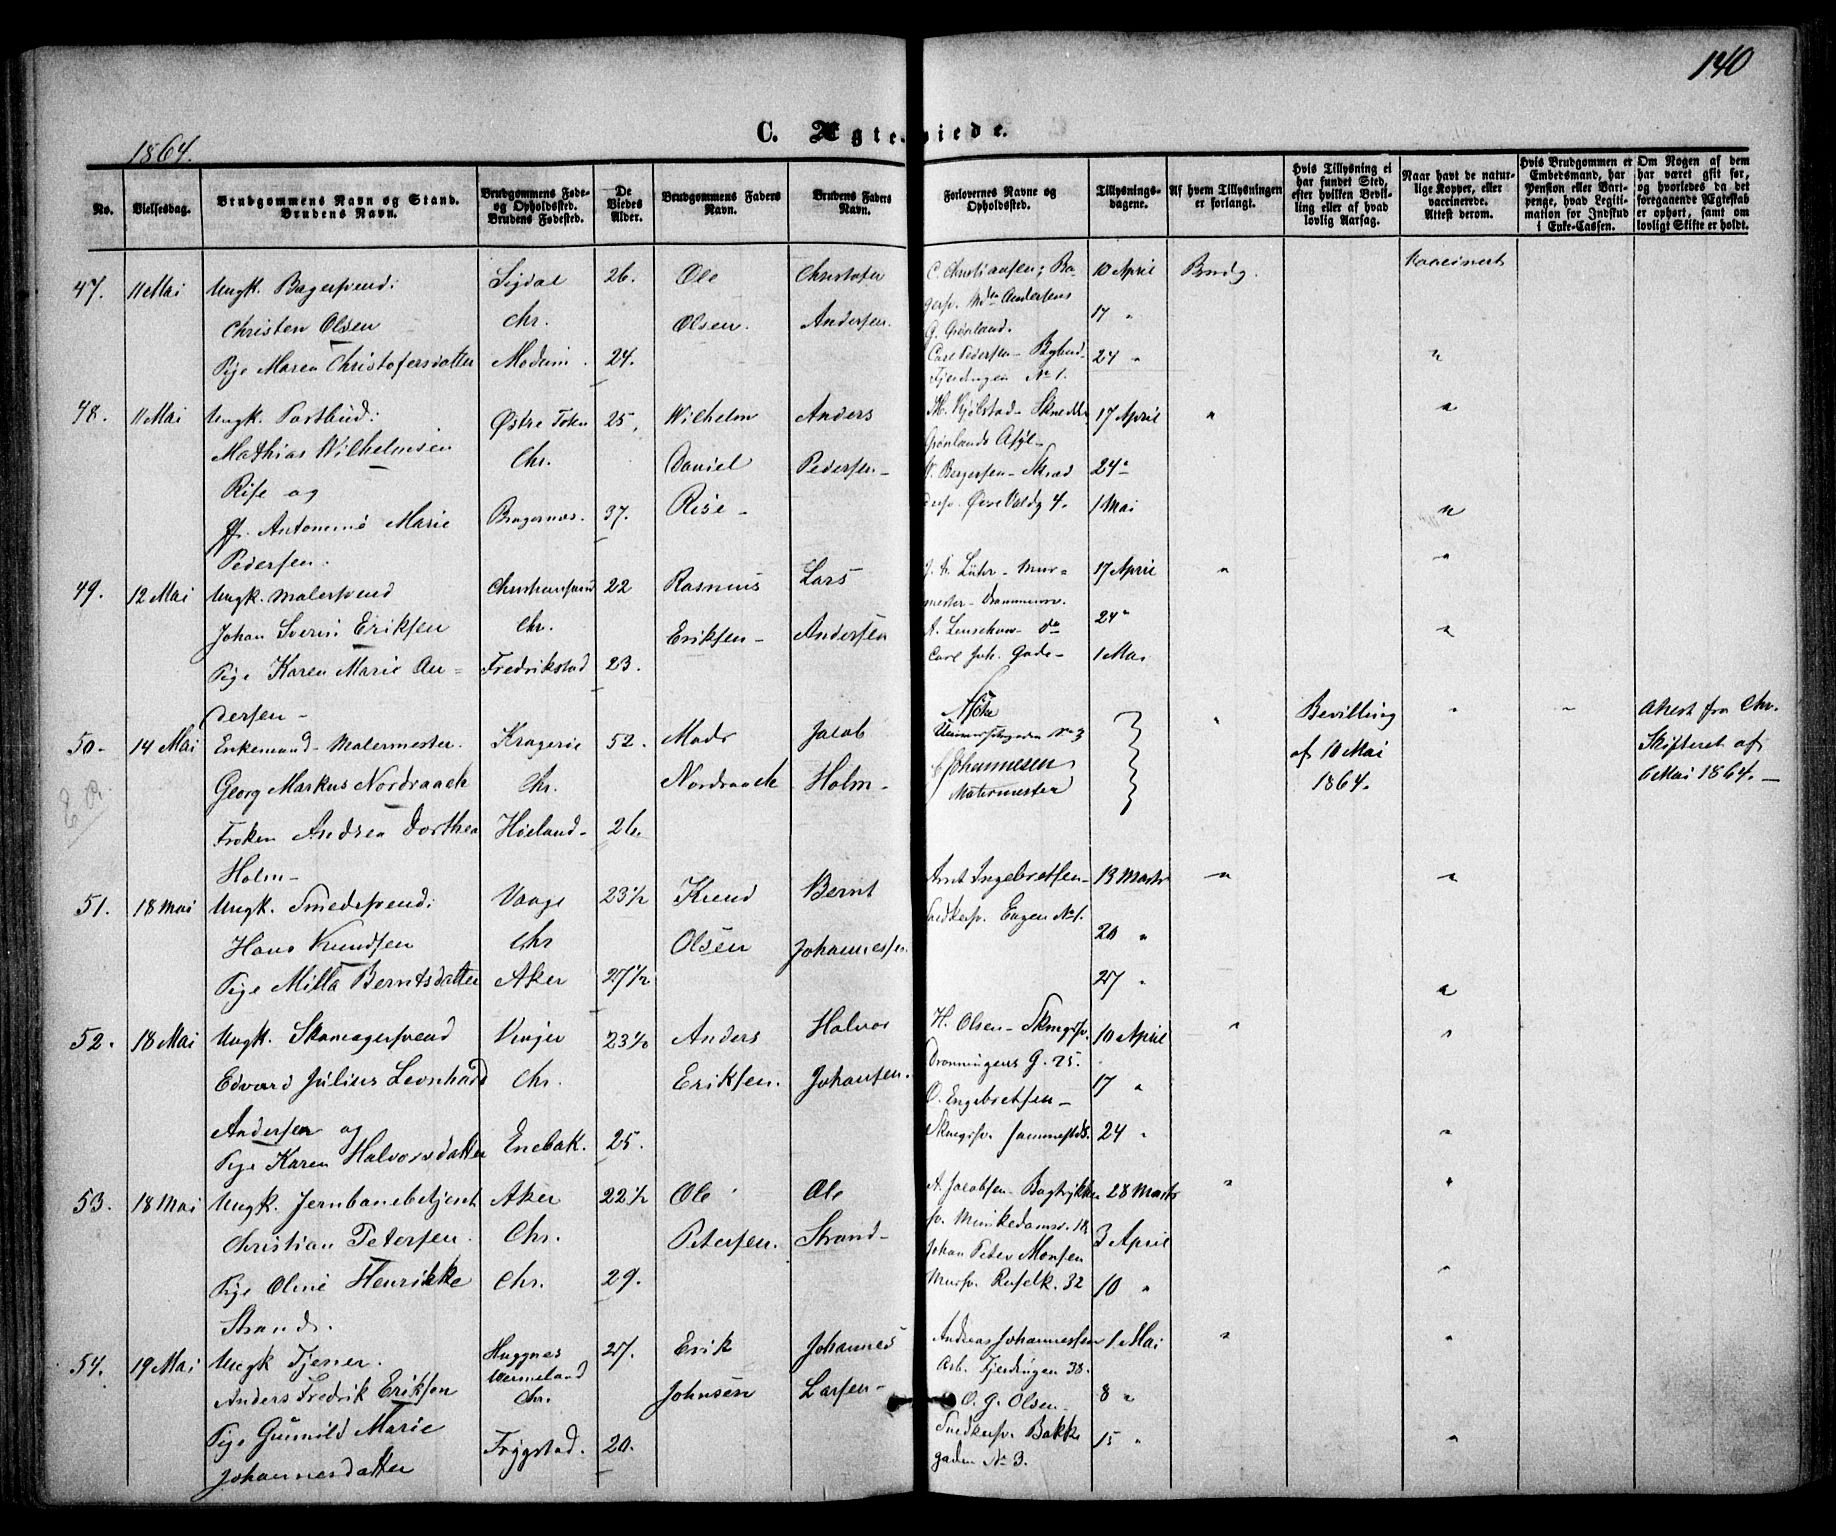 140
C. Ægteviede.
1864.
No.
Vielsesdag.
Brudgommens Navn og Stand.
Brudens Navn.
Brudgommens Føde-
og Opholdssted.
Brudens Fødested.
De
Viedes
Alder.
Brudgommens Faders
Navn.
Brudens Faders
Navn.
Forlovernes Navne og
Opholdssted.
Tillysnings-
dagene.
Af hvem Tillysningen
er forlangt.
Hvis Tillysning ei
har fundet Sted,
efter hvilken Bevil-
ling eller af hvad
lovlig Aarsag.
Naar havt de natur-
lige Kopper, eller
vaccinerede.
Attest derom.
Hvis Brudgommen er
Embedsmand, har
Pension eller Vart-
penge, hvad Legiti-
mation for Indskud
i Enke-Cassen.
Om Nogen af dem
har været gift før,
og hvorledes da det
foregaaende Ægteskab
er ophørt, samt om
lovligt Skifte er holdt.
47. 11 Mai Ungk. Bagersvend: Sigdal 26. Ole Christofer C. Christiansen, Ba- 10 April Brudg. Vaccinert
Christen Olsen Chr. Olsen. Andersen. gersv. Andersens 17 "
G. Grønland.
Pige Maren Christofersdatter Modum. 24. Carl Pedersen - Bybud 24 " "
Fjerdingen No 1.
48. 11 Mai Ungk. Portbud: Østre Toten 25. Wilhelm Anders Kjølstad - Snedker 17 April " "
Mathias Wilhelmsen Chr. Daniel Pedersen - Grønlands Asyl -
Rise og Rise - Bergersen - Skrad 24 "
dersv. Øvre Voldg 4. 1 Mai
Fr. Antomine Marie Bragernæs. 37. "
Pedersen.
49. 12 Mai Ungk. Malersvend Christiansund 22 Rasmus Lars Lühr - Mur- 17 April " "
Johan Sverin Eriksen Chr. Eriksen - Andersen mester - Drammensv. 24 "
A. Lenschow - do "
Pige Karen Marie An- Fredrikstad 23. Carl Joh. Gade - 1 Mai
dersen -
50 - 14 Mai Enkemand - Malermester. Kragerøe 52. Mads Jacob Universitetsgaden No 3 " Bevilling " - Attest fra Chr.
Georg Markus Nordraach Chr. Nordraach Holm - Johannesen af 10 Mai Skifteret af
Malermester 1864. 6 Mai 1864. -
Frøken Andrea Dorthea Høeland - 26.
Holm -
51. 18 Mai Ungk. Smedesvend: Vaage 23½ Knud Bernt Arnt Ingebretsen - 13 Marts " "
Hans Knudsen Chr Olsen Johannessen Snedkersv. Engen No 1. 20 "
Pige Milla Berntsdatter Aker 27½ 27 " "
52. 18 Mai Ungk. Skomagersvend Vinger 23½ Anders Halvor H. Olsen - Skmgsv. 10 April " "
Edvard Julius Leonhard Chr. Eriksen. Johansen. Dronningens G. 25. 17 "
O. Engebretsen -
Andersen og
Pige Karen Halvorsdatter Enebak. 25. Skmgsv. sammesteds. 24 " "
53. 18 Mai Ungk. Jernbanebetjent Aker 22½ Ole Ole A. Jacobsen - Bogtrykker 28 Marts " "
Christian Petersen. Chr. Petersen. Strand - sv. Munkedamsv. 18. 3 April
Johan Peter Monsen
Pige Oline Henrikke Chr. 29. Mursv. Ruselk. 32 10 " "
Strand.
54. 19 Mai Ungk Tjener. Huggnes 27. Erik Johannes Andreas Johannessen 1 Mai " "
Wermeland
Anders Fredrik Eriksen Chr. Johnsen Larsen - Arb. Fjerdingen 38. 8 "
O. G. Olsen -
Pige Gunnild Marie Frygstad. 20. Snedkersv. Bakke 15 " "
Johannesdatter gaden No 3.